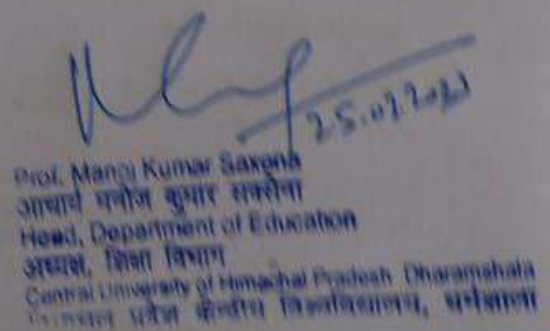 25.02.2021
Prof. Manoj Kumar Saxena
आचार्य मनोज कुमार सक्सेना
Head, Department of Education
अध्यक्ष, शिक्षा विभाग
Central University of Himachal Pradesh Dharamshala
हिमाचल प्रदेश केन्द्रीय विश्वविद्यालय, धर्मशाला